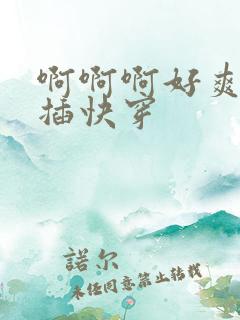 啊啊啊好爽
插快穿
諾尔
未经同意禁止转载